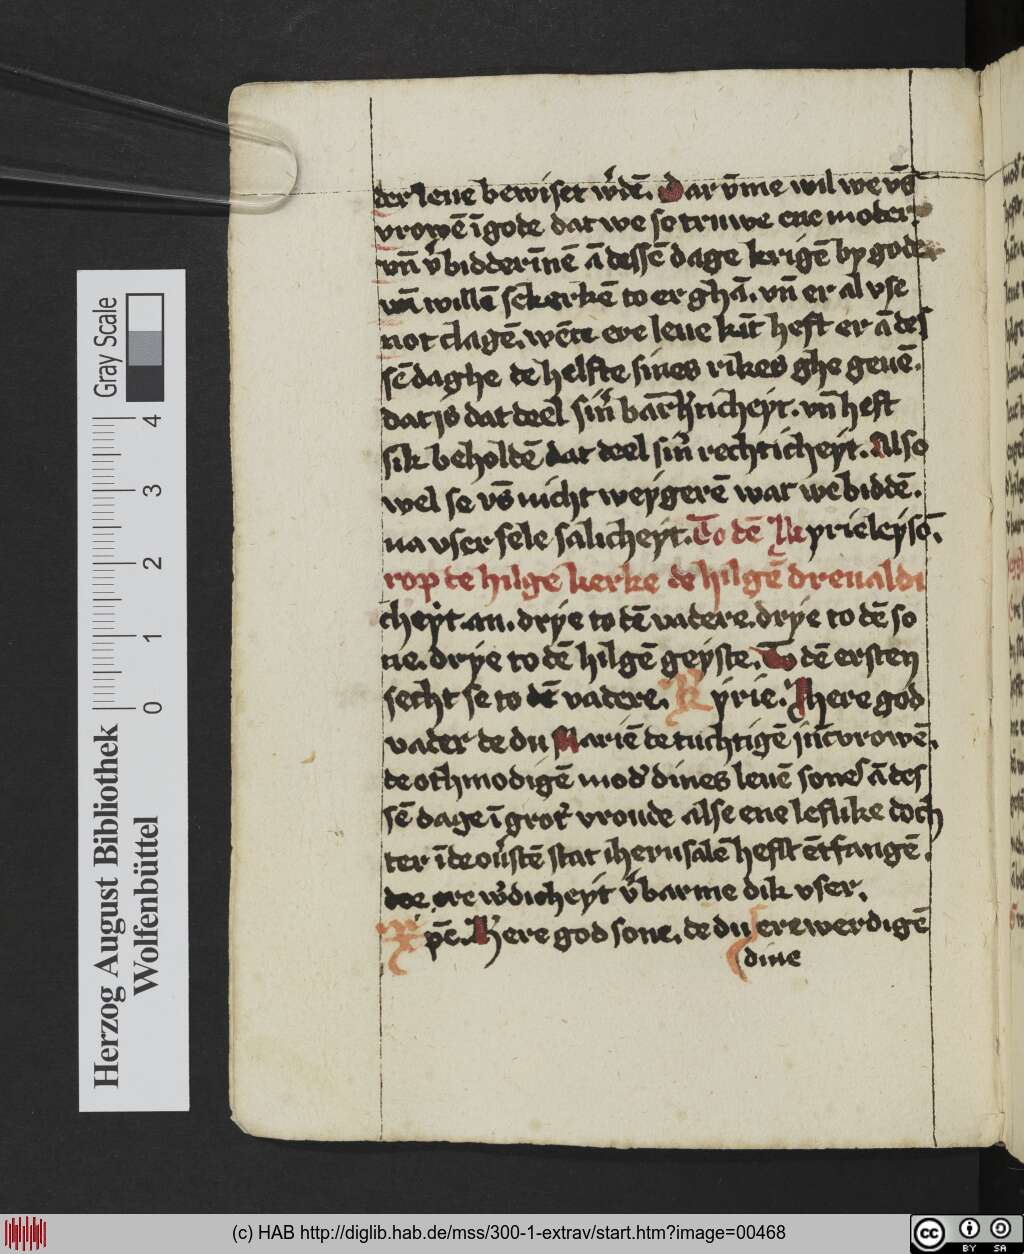 der leue bewiset w'dē. Dar v̄me wil we vs̄
vrowē ī gode dat we so truwe ene moder
vn̄ v'bidderīnē ā dessē dage krigē by gode
vn̄ willē sekerkē to er ghā. vn̄ er al vse
not clagē. wēte ere leue kīt heft er ā des
sē daghe de helfte sines rikes ghe geuē.
dat is dat deel sin' barm̄h'ticheyt. vn̄ heft
sik beholdē dat deel sin' rechticheyt. Also
wel se vs̄ nicht weygerē wat we biddē.
na vser sele salicheyt. To dē Kyrieleyso̅.
rop de hilge kerke de hilgē dreualdi
cheyt an. drye to dē vadere. drye to dē so
ne. drye to dē hilgē geyste. To dē ersten
secht se to dē vadere. Kyrie. There god
vader de du Mariē de tuchtigē juncvrowē.
de othmodigē mod' dines leuē sones ā des
sē dage ī grot' vroude alse ene leflike doch
ter ī de ou'stē stat iherusalē heft ētfangē.
dor ere w'dicheyt v'barme dik vser.
Xp̄e. Here god sone. de du erewerdigē
dine
Gray Scale
4
3
2
1
0
Herzog August Bibliothek
Wolfenbüttel
(c) HAB http://diglib.hab.de/mss/300-1-extrav/start.htm?image=00468
cc
BY SA